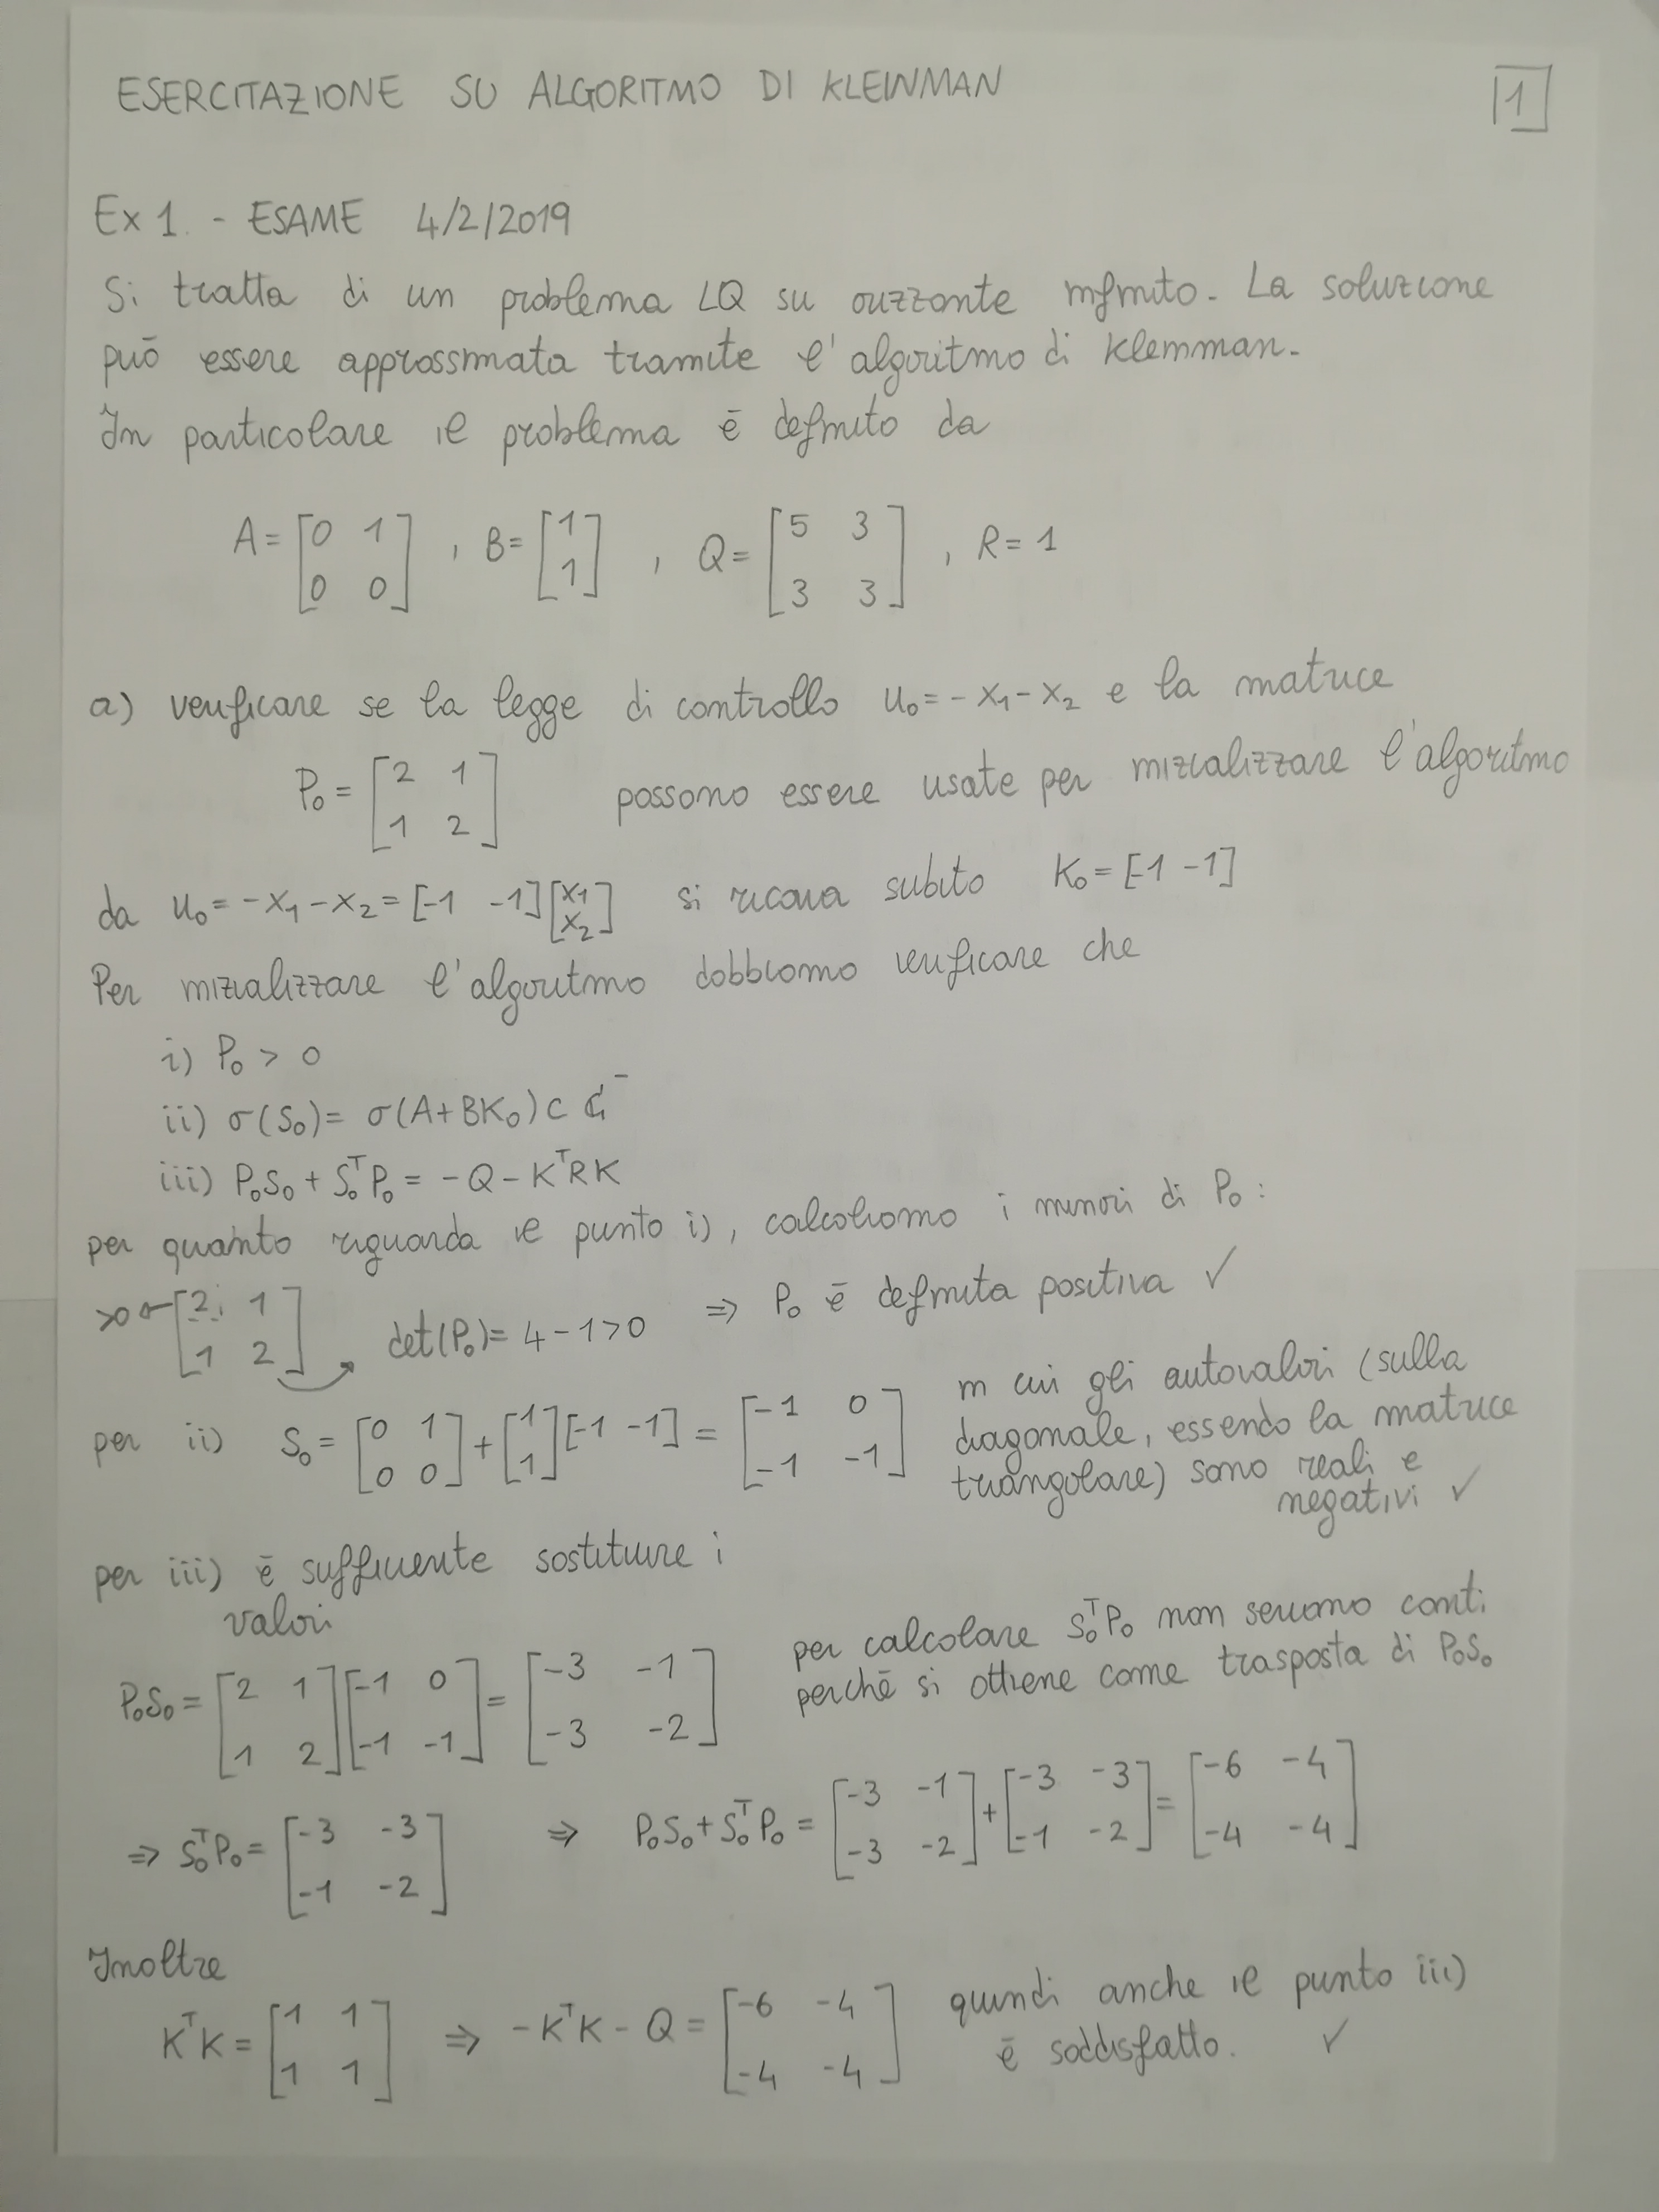 ESERCITAZIONE SU ALGORITMO DI KLEINMAN
1
Ex 1. - ESAME 4/2/2019
Si tratta di un problema LQ su orizzonte infinito. La soluzione
può essere approssimata tramite l'algoritmo di Kleinman.
In particolare il problema è definito da
A = [0 1; 0 0], B = [1; 1], Q = [5 3; 3 3], R = 1
a) verificare se la legge di controllo u₀ = -x₁ - x₂ e la matrice
P₀ = [2 1; 1 2] possono essere usate per inizializzare l'algoritmo
da u₀ = -x₁ - x₂ = [-1 -1][x₁; x₂] si ricava subito K₀ = [-1 -1]
Per inizializzare l'algoritmo dobbiamo verificare che
i) P₀ > 0
ii) σ(S₀) = σ(A+BK₀) ⊂ ℂ⁻
iii) P₀S₀ + S₀ᵀP₀ = -Q - KᵀRK
per quanto riguarda il punto i), calcoliamo i minori di P₀:
>0 ← [2 1; 1 2] det(P₀) = 4 - 1 > 0 ⇒ P₀ è definita positiva ✓
per ii) S₀ = [0 1; 0 0] + [1; 1][-1 -1] = [-1 0; -1 -1] in cui gli autovalori (sulla
diagonale, essendo la matrice
triangolare) sono reali e
negativi ✓
per iii) è sufficiente sostituire i
valori
P₀S₀ = [2 1; 1 2][-1 0; -1 -1] = [-3 -1; -3 -2] per calcolare S₀ᵀP₀ non servono conti
perché si ottiene come trasposta di P₀S₀
⇒ S₀ᵀP₀ = [-3 -3; -1 -2] ⇒ P₀S₀ + S₀ᵀP₀ = [-3 -1; -3 -2] + [-3 -3; -1 -2] = [-6 -4; -4 -4]
Inoltre
KᵀK = [1 1; 1 1] ⇒ -KᵀK - Q = [-6 -4; -4 -4] quindi anche il punto iii)
è soddisfatto. ✓